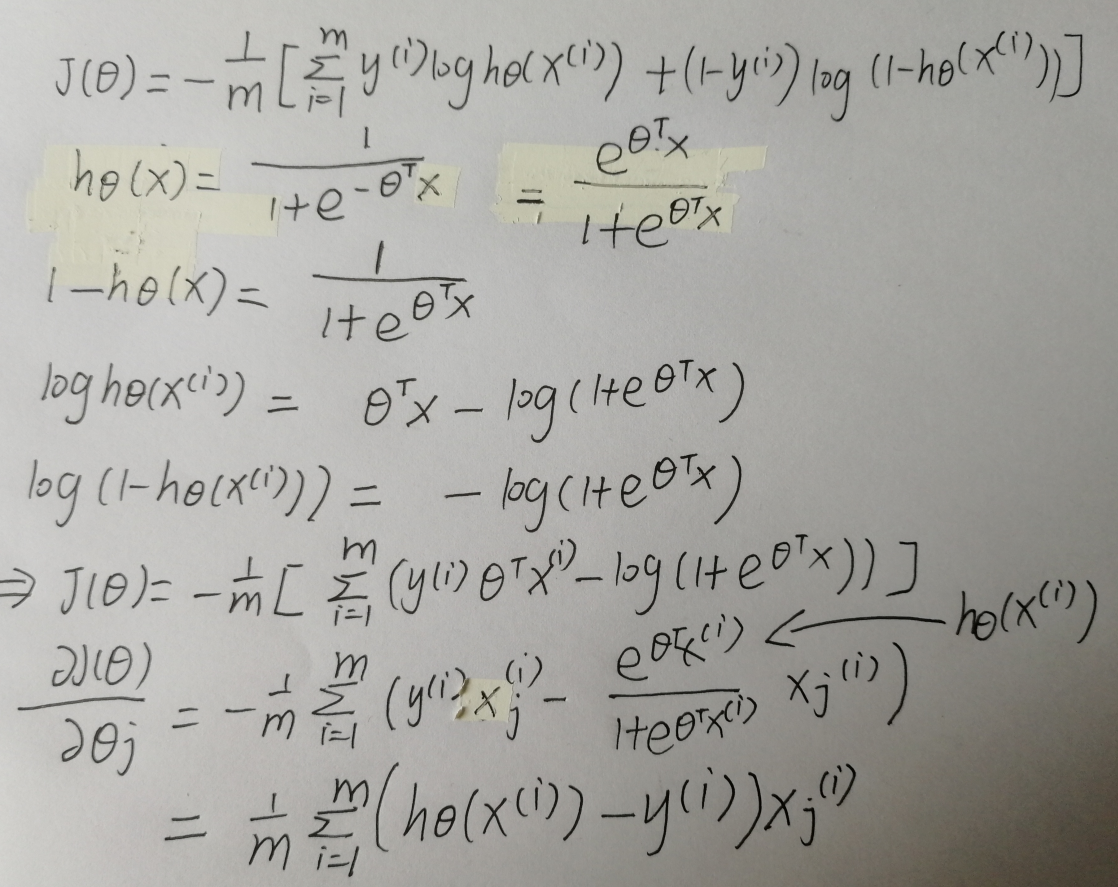 J(θ) = -\frac{1}{m} [ \sum_{i=1}^{m} y^{(i)} log hθ(x^{(i)}) + (1-y^{(i)}) log (1-hθ(x^{(i)})) ]
hθ(x) = \frac{1}{1+e^{-θ^T x}} = \frac{e^{θ^T x}}{1+e^{θ^T x}}
1-hθ(x) = \frac{1}{1+e^{θ^T x}}
log hθ(x^{(i)}) = θ^T x - log(1+e^{θ^T x})
log (1-hθ(x^{(i)})) = - log(1+e^{θ^T x})
⇒ J(θ) = -\frac{1}{m} [ \sum_{i=1}^{m} (y^{(i)} θ^T x^{(i)} - log(1+e^{θ^T x})) ]
\frac{∂J(θ)}{∂θ_j} = -\frac{1}{m} \sum_{i=1}^{m} (y^{(i)} x_j^{(i)} - \frac{e^{θ^T x^{(i)}}}{1+e^{θ^T x^{(i)}}} x_j^{(i)}) ← hθ(x^{(i)})
= \frac{1}{m} \sum_{i=1}^{m} (hθ(x^{(i)}) - y^{(i)}) x_j^{(i)}